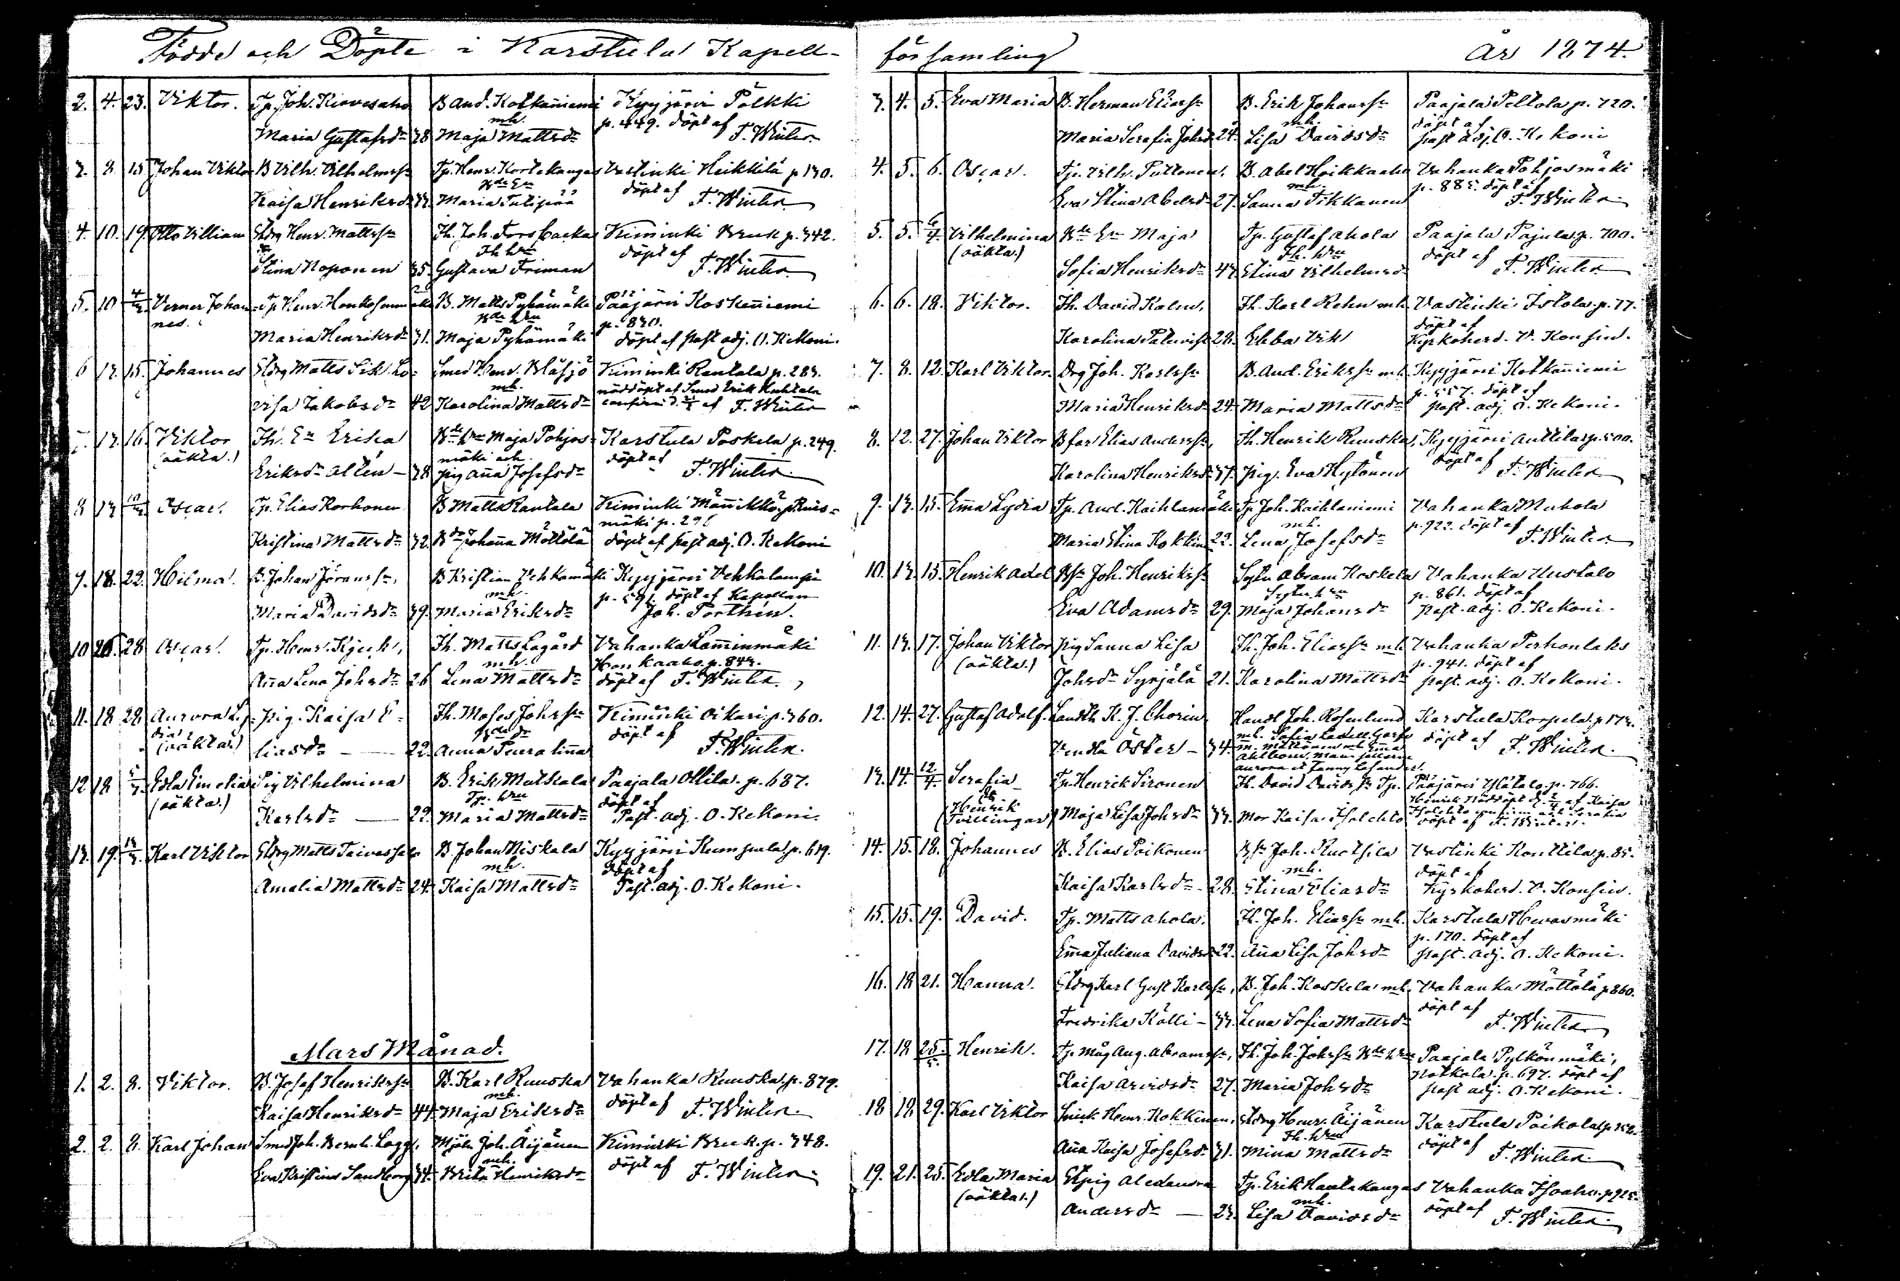 Födde och Döpte i Karstula Kapell- församling År 1874.
2. 4. 23. Viktor. Maria Gustafsdr 28 B And. Kotkaniemi mh. Maja Mattsdr Kyyjärvi Pölkki p. 449. döpt af F. Winter
3. 8. 15 Johan Viktor B Vilh. Vilhelmss. Kaisa Henriksdr Tp. Henr. Kortekangas Maria Tulipää Vastinki Heikkilä p 130. döpt af F. Winter
4. 10. 19 Otto Villiam Henr. Mattss. Stina Koponen 35. Gustava Friman Kiminki Bruk p. 342. döpt af F. Winter
5. 10 4/3 Verner Johannes Tp Henr. Maria Henriksdr 31. B. Matts Pyhämäki Maja Pyhämäki Pääjärvi Koskeniemi p. 830. döpt af past. adj. O. Kekoni.
6 13. 15. Johannes Matts Lovisa Jakobsdr 42 Smed Henr. Blåsjö mh. Karolina Mattsdr Kiminki Rantala p. 283. nöddöpt af Smed Erik Huhtala af F. Winter
7. 13. 16. Viktor (oäkta.) Erika Eriksdr Alten 28 Maja Pohjosmäki och pig Anna Josefsdr Karstula Poskela p. 249. döpt af F. Winter
8 13 Oscar. Tp. Elias Korhonen Kristina Mattsdr 32. B Matts Rantala Johanna Möttölä Kiminki Männikkö, mäki p. 296 döpt af past adj. O. Kekoni
9. 18. 22. Hilma. B. Johan Göranss. Maria Davidsdr 39. B Kristian Vehkamäki mh. Maria Eriksdr Kyyjärvi Vehkalampi p. 591. döpt af Kapellan Joh. Porthén.
10 26. 28 Oscar. Tp. Henr. Anna Lena Johsdr 26 Th. Matts Lagård mh. Lena Mattsdr Vahanka Lamminmäki Honkaaho p. 843. döpt af F. Winter
11. 18 28. Aurora Lydia (oäkta.) pig. Kaisa Eliasdr 22. Th. Moses Johss. Anna Peuralinna Kiminki Oikari p. 360. döpt af F. Winter.
12 18 5/3 Edla Emelia (oäkta) Pig Vilhelmina Karlsdr 22. B. Erik Matskala Tp. hru Maria Mattsdr Paajala Ollila p. 687. döpt af Past. adj. O. Kekoni.
13. 19. Karl Viktor Matts Taivassalo Amalia Mattsdr 24. B Johan Niskala mh. Kaisa Mattsdr Kyyjärvi Kumpula p. 619. döpt af Past. adj. O. Kekoni.
Mars Månad.
1. 2. 8. Viktor. B. Josef Henrikss. Kaisa Henriksdr 44. B. Karl Ruuska mh. Maja Eriksdr Vahanka Ruuska p. 879. döpt af F. Winter.
2. 2. 8. Karl Johan Smed Joh. Bernh. Lagg, Eva Kristina Sandberg 34. Joh. Äijänen mh. Brita Henriksdr Kiminki Bruk. p. 348. döpt af F. Winter.
3. 4. 5. Eva Maria B. Herman Eliass. Maria Serafia Johsdr 24. B. Erik Johanss. mh. Lisa Davidsdr Paajala Peltola p. 720. döpt af past adj. O. Kekoni
4. 5. 6. Oscar. Tp. Vilh. Puttonen, Eva Stina Abelsdr 27. B. Abel Hoikkaaho mh. Sanna Tikkanen Vahanka Pohjosmäki p. 885. döpt af F. Winter
5. 5. 6/4 Vilhelmina (oäkta.) Maja Sofia Henriksdr 43. Tp. Gustaf Ahola Th. hru Stina Vilhelmsdr Paajala Pajula p. 700. döpt af F. Winter
6. 6. 18. Viktor. Th. David Kalm, Karolina Palmvist 28. Th. Karl Rohm mh. Ebba Vik Vastinki Istola p. 77. döpt af Kyrkoherd. V. Konsin.
7. 8. 12. Karl Viktor. Drg Joh. Karlss. Maria Henriksdr 24. B. And. Erikss. mh. Maria Mattsdr Kyyjärvi Kotkaniemi p. 557. döpt af past. adj. O. Kekoni.
8. 12. 27. Johan Viktor Elias Anderss., Karolina Henriksdr 37. Th. Henrik Ruuska, pig. Eva Hytönen Kyyjärvi Anttila p. 500. döpt af F. Winter
9. 13. 15. Emma Lydia Tp. And. Kaihlamäki Maria Stina Kokkin 22. Tp Joh. Kaihlaniemi mh. Lena Josefsdr Vahanka Mahola p. 922. döpt af F. Winter
10. 13. 15. Henrik Adel Joh. Henrikss. Eva Adamsdr 29. Sytn. Abram Koskela Maja Johansdr Vahanka Uustalo p. 861. döpt af past. adj. O. Kekoni.
11. 13. 17. Johan Viktor (oäkta.) pig Sanna Lisa Johsdr Syrjälä 21. Th. Joh. Eliass. mh Karolina Mattsdr Vahanka Perhonlaks p. 941. döpt af past. adj. O. Kekoni.
12. 14. 27. Gustaf Adolf. K. J. Chorin Vendla Öster 34. Handl Joh. Rosenlund, Karstula Korpela p 173. döpt af F. Winter.
13. 14 12/4 Serafia & Henrik (Tvillingar) Tp. Henrik Sironen Maja Lisa Johsdr 33. Th. David Davidss. Tp. Mor Kaisa Isolehto Pääjärvi Ylätalo p. 766. Henrik Nöddöpt af Kaisa
14. 15. 18. Johannes B. Elias Poikonen Kaisa Karlsdr 28. Joh. Ruotsila mh. Stina Eliasdr Vastinki Konttila p. 85. döpt af Kyrkoherd. V. Konsin.
15. 15. 19. David. Tp. Matts Ahola. Emma Juliana Davidsdr 22. Th. Joh. Eliass. mh. Anna Lisa Johsdr Karstula Hevosmäki p. 170. döpt af past. adj. O. Kekoni.
16. 18 21. Hanna. Karl Gust Karlss. Fredrika Kölli 33. B. Joh. Koskela mh. Lena Sofia Mattsdr Vahanka Möttölä p 860. döpt af F. Winter
17. 18 25/5. Henrik. Tp. Måg Aug. Abramss., Kaisa Arvidsdr 27. Th. Joh. Johss. Maria Johsdr Paajala Pylkönmäki, p. 697. döpt af past adj. O. Kekoni.
18 18 29. Karl Viktor Henr. Kokkinen, Anna Kaisa Josefsdr 31. Henr. Äijänen Th. hru Mina Mattsdr Karstula Poikola döpt af F. Winter
19. 21. 25. Edla Maria (oäkta.) Alexandra Andersdr 23. Tp. Erik Hautakangas mh. Lisa Davidsdr Vahanka Isoaho p 925. döpt af F. Winter